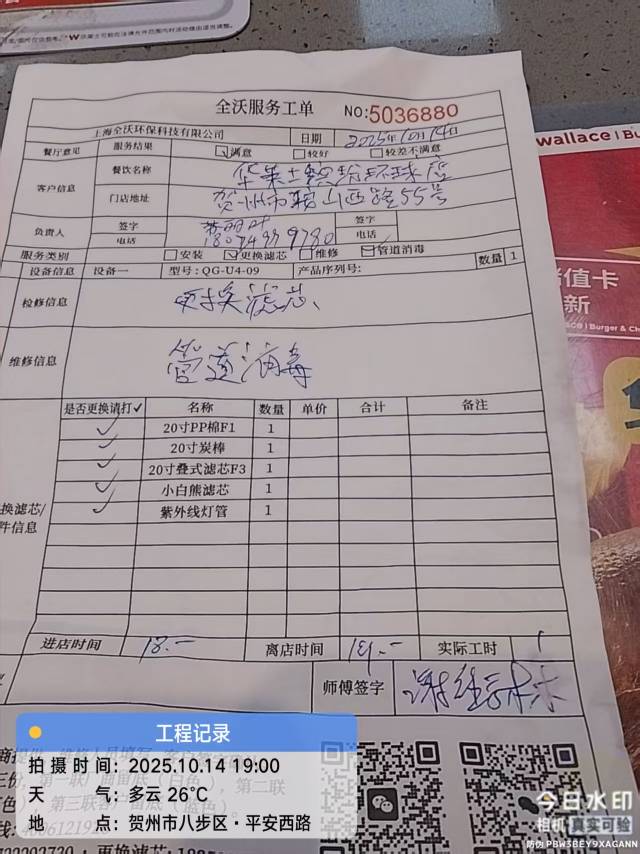 全沃服务工单 NO:5036880
上海全沃环保科技有限公司 日期 2025年10月14日
餐厅意见 服务结果 满意 较好 较差不满意
客户信息 餐饮名称 华莱士
门店地址 贺州市 山西路55号
负责人 签字 签字
电话 电话
服务类别 安装 更换滤芯 维修 管道消毒
设备信息 设备一 型号:QG-U4-09 产品序列号: 数量 1
检修信息 更换滤芯、
维修信息 管道消毒
是否更换请打✓ 名称 数量 单价 合计 备注
✓ 20寸PP棉F1 1
✓ 20寸炭棒 1
✓ 20寸叠式滤芯F3 1
✓ 小白熊滤芯 1
✓ 紫外线灯管 1
换滤芯/
件信息
进店时间 18.— 离店时间 19.— 实际工时 1
师傅签字
工程记录
拍摄时间: 2025.10.14 19:00
天 气: 多云 26℃
地 点: 贺州市八步区·平安西路
今日水印
相机 真实可验
防伪 PBW3BEY9XAGANN
wallace
储值卡
新
Burger & Ch